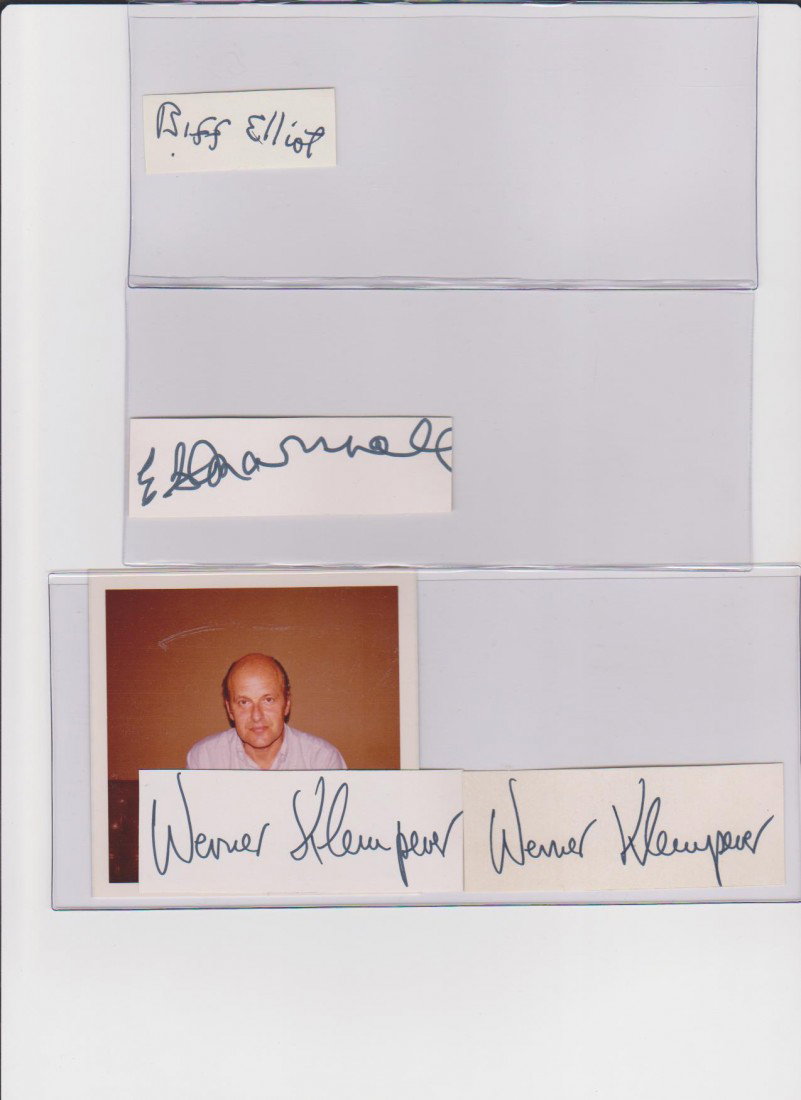 Biff Elliot
E G Marshall
Werner Klemperer
Werner Klemperer